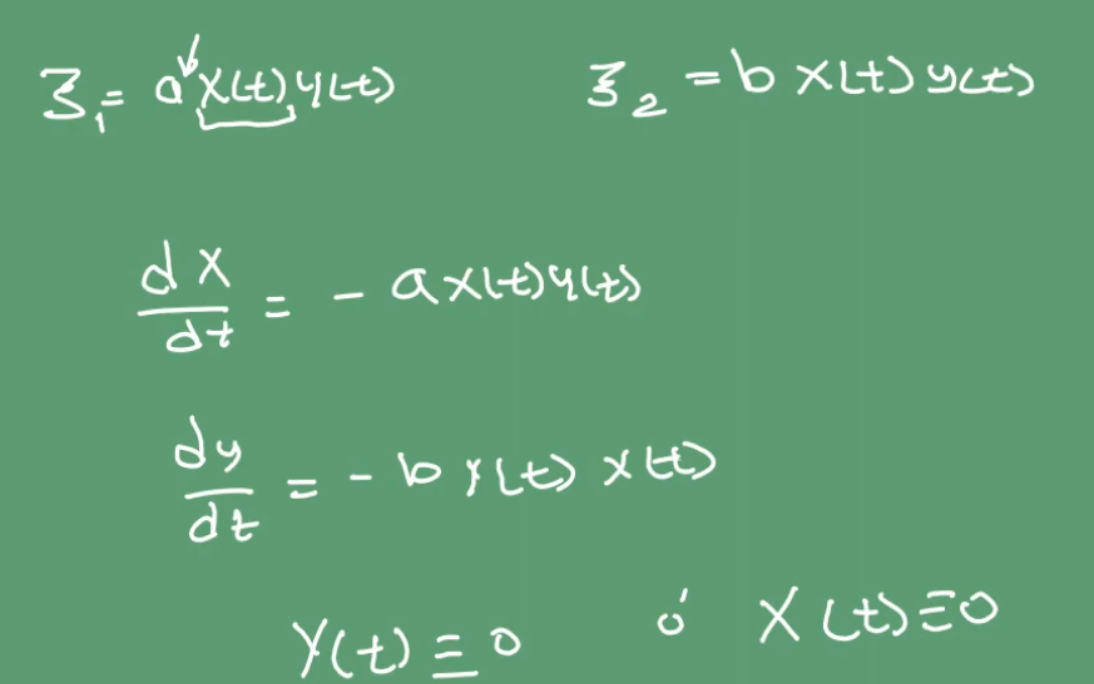 ξ₁ = a x(t) y(t)    ξ₂ = b x(t) y(t)
dx/dt = - a x(t) y(t)
dy/dt = - b y(t) x(t)
y(t) ≡ 0    ó    x(t) ≡ 0